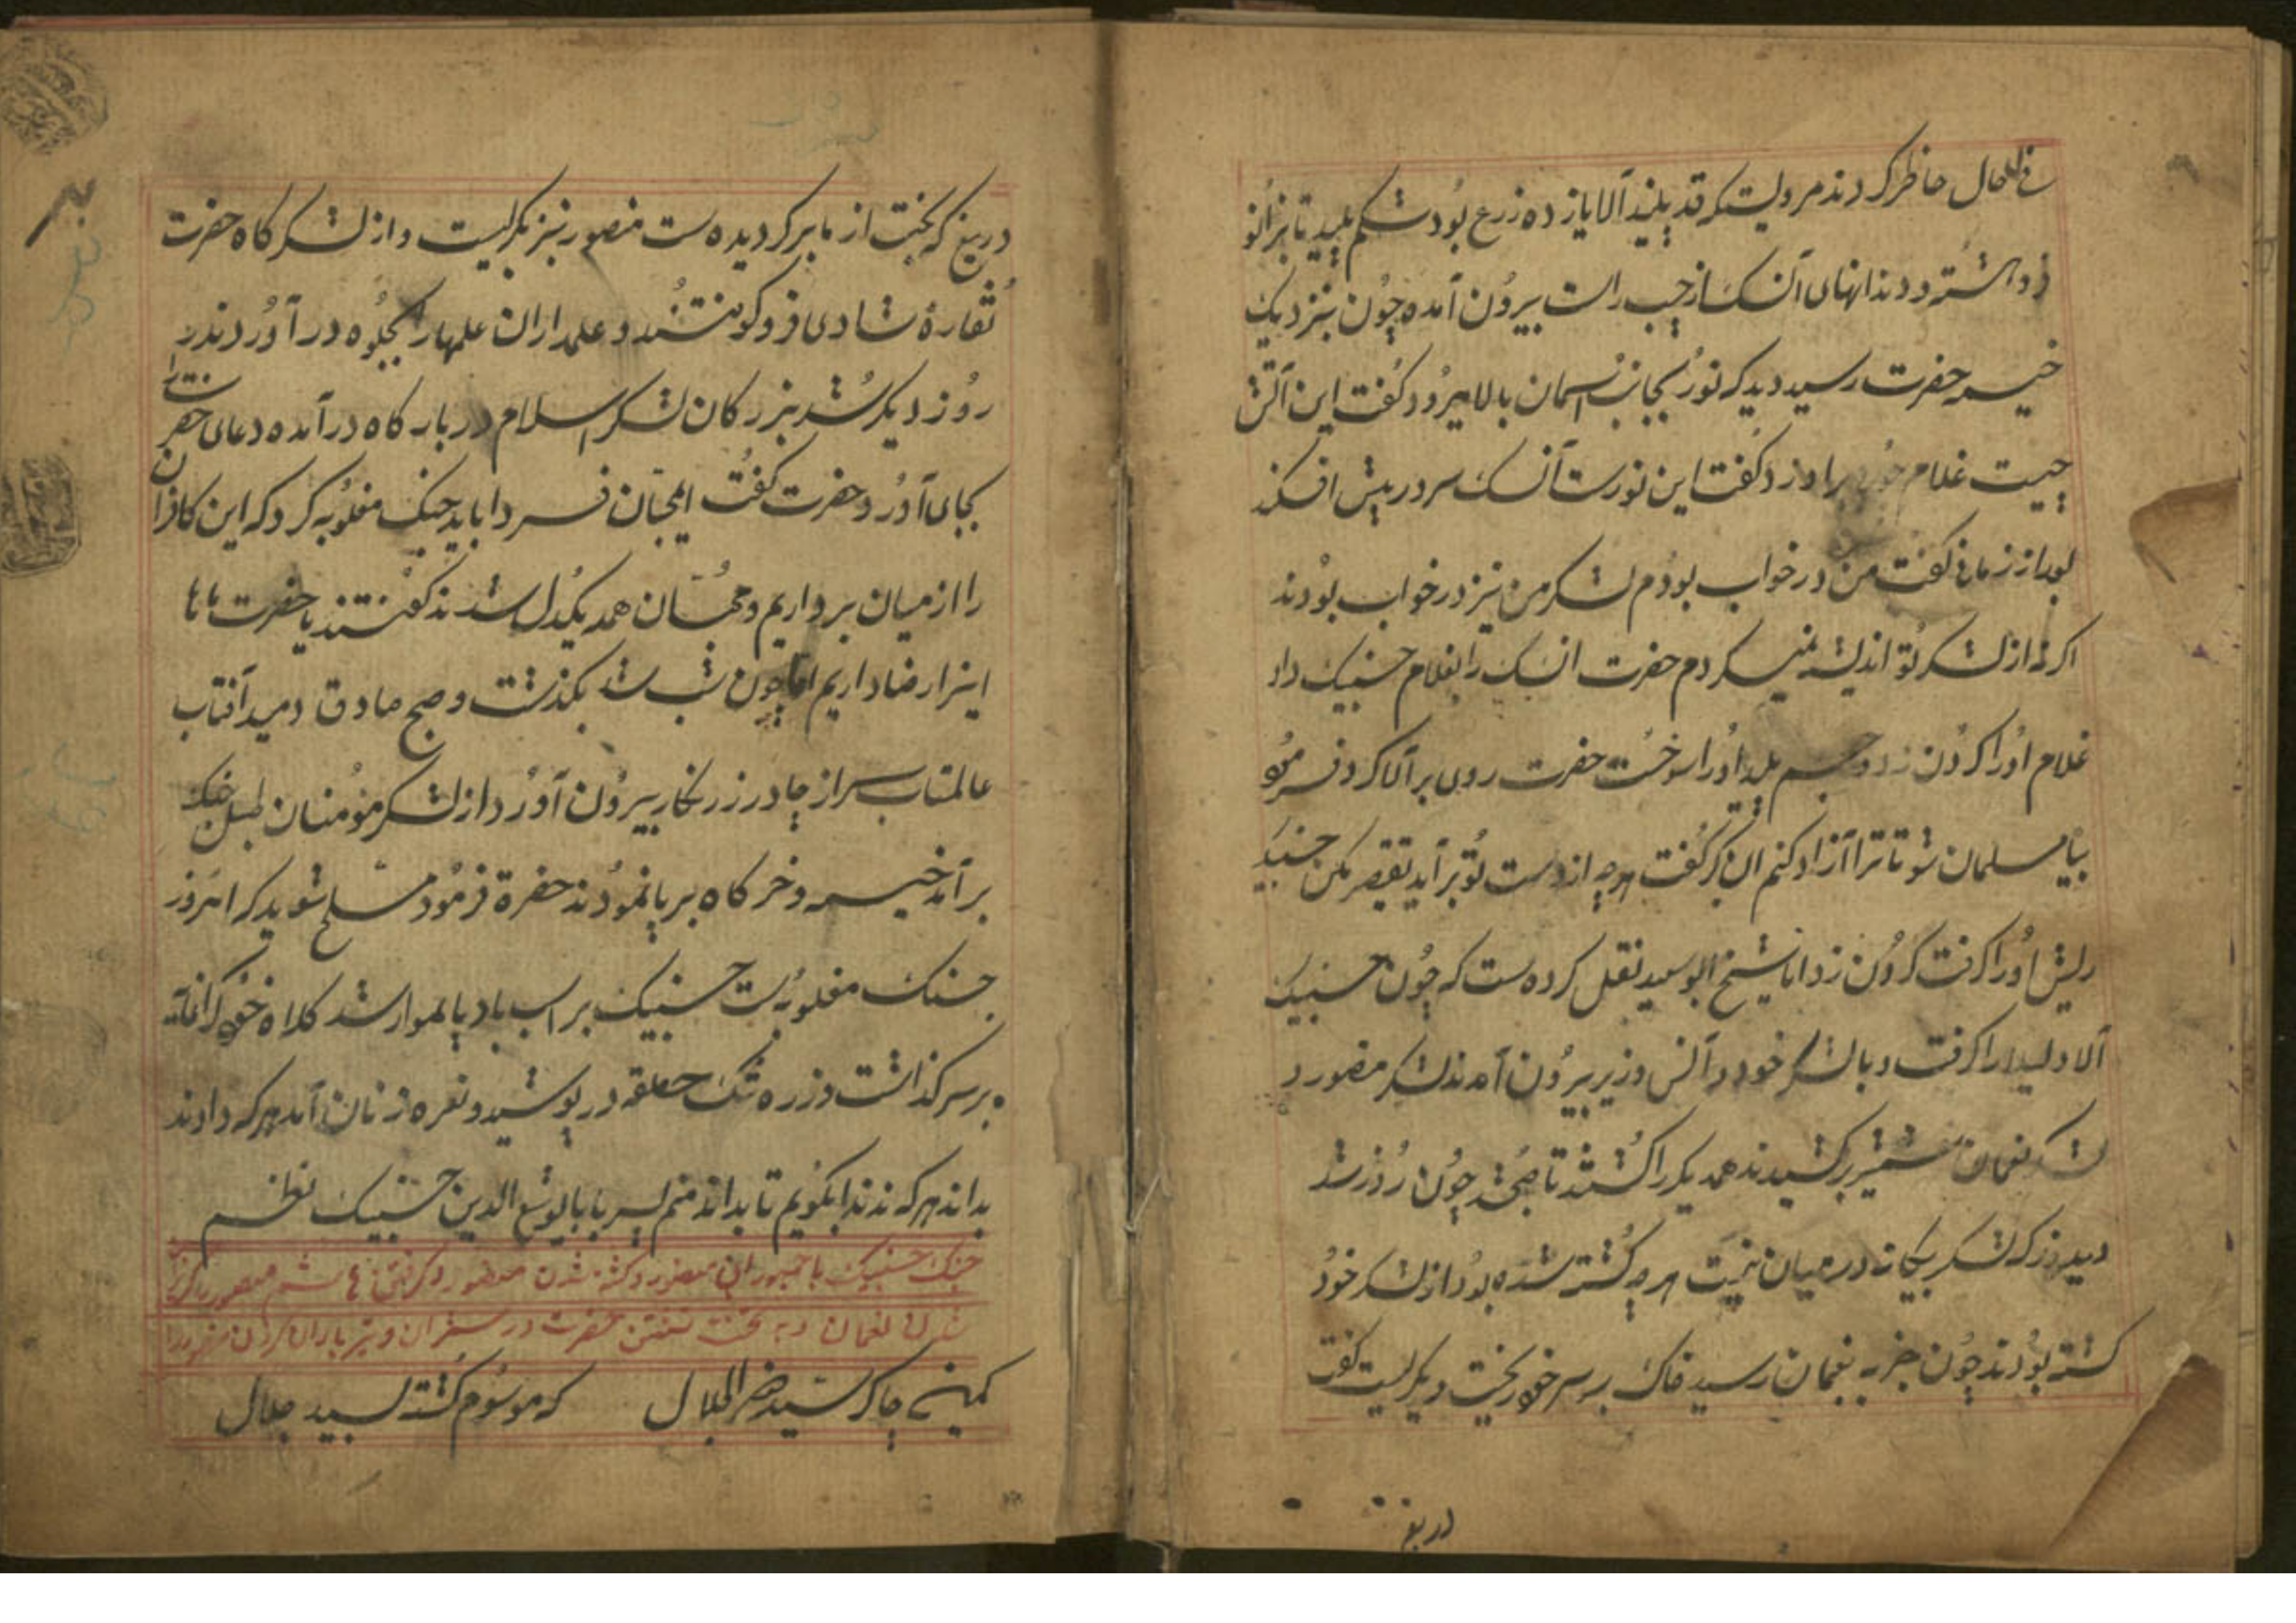 فی الحال حاظر کردند مرولیست که قد بلند آلایاز ده زرع بود شکم پلید تا بزانو
و دندانهای آن سک از چپ راست بیرون آمده چون بنزدیک
خیمه حضرت رسید دید که نور بجانب اسمان بالا میرود کفت این آتش
چیست غلام را و زد کفت این نورست آن سک سر در پیش افکند
بعد از زمانی کفت من در خواب بودم لشکر من نیز در خواب بودند
اکر نه از لشکر تو اندیشه نمیکردم حضرت ان سک را بغلام حسنیک داد
غلام اورا کردن زد و جسم پلید اورا سوخت حضرت روی بر آلا کرد فرمود
بیا مسلمان شو تا ترا آزاد کنم ان کبر کفت هرچه از دست تو بر آید تقصیر مکن
ریش اورا کرفت کردن زد اما شیخ ابوسعید نقل کرده ست که چون حسنیک
آلا و لیلا را کرفت و با لشکر خود و آلش وزیر بیرون آمدند لشکر منصور و
لشکر نعمان شمشیر برکشیدند همدیکر را کشتند تا صبح شد چون روز شد
دیدند که لشکر بیکانه در میان نیست هرچه کشته شده بود از لشکر خود
کشته بودند چون خبر به نعمان رسید خاک بر سر خود ریخت و بکریست کفت
دریغ
دریغ که بخت از ما برکردیده ست منصور نیز بکریست و از لشکرکاه حضرت
نقارهٔ شادی فرو کوفتند و علمداران علمهارا بجلوه در آوردند
روز دیکر شد بزرکان لشکر اسلام در بارکاه در آمده دعای حضرت را
بجای آورد و حضرت کفت ایمحبان فردا باید جنک مغلوبه کرد که این کافران
را از میان برداریم و محبان همه یکدل شدند کفتند یا حضرت ما
اینرا رضا داریم اما چون شب شد بکذشت و صبح صادق دمید آفتاب
عالمتاب سر از چادر زرنکار بیرون آورد از لشکر مؤمنان طبل جنک
بر آمد خیمه و خرکاه بر پا نمودند حضرة فرمود مسلح شوید که امروز
جنک مغلوبه ست حسنیک بر اسب باد پا سوار شد کلاه خود
بر سر کذاشت و زره تنک حلقه در پوشید و نعره زنان آمد هرکه داوند
بداند هرکه نداند بکویم تا بداند منم پسر بابا یوشع الدین حسنیک نظم
جنک حسنیک با منصور و کشته شدن منصور و کرفتن
شدن نعمان و به تخت نشستن حضرت در و تیر باران کردن منصور را
کمینه چاکر سید جلال که موسوم کشته سید جلال